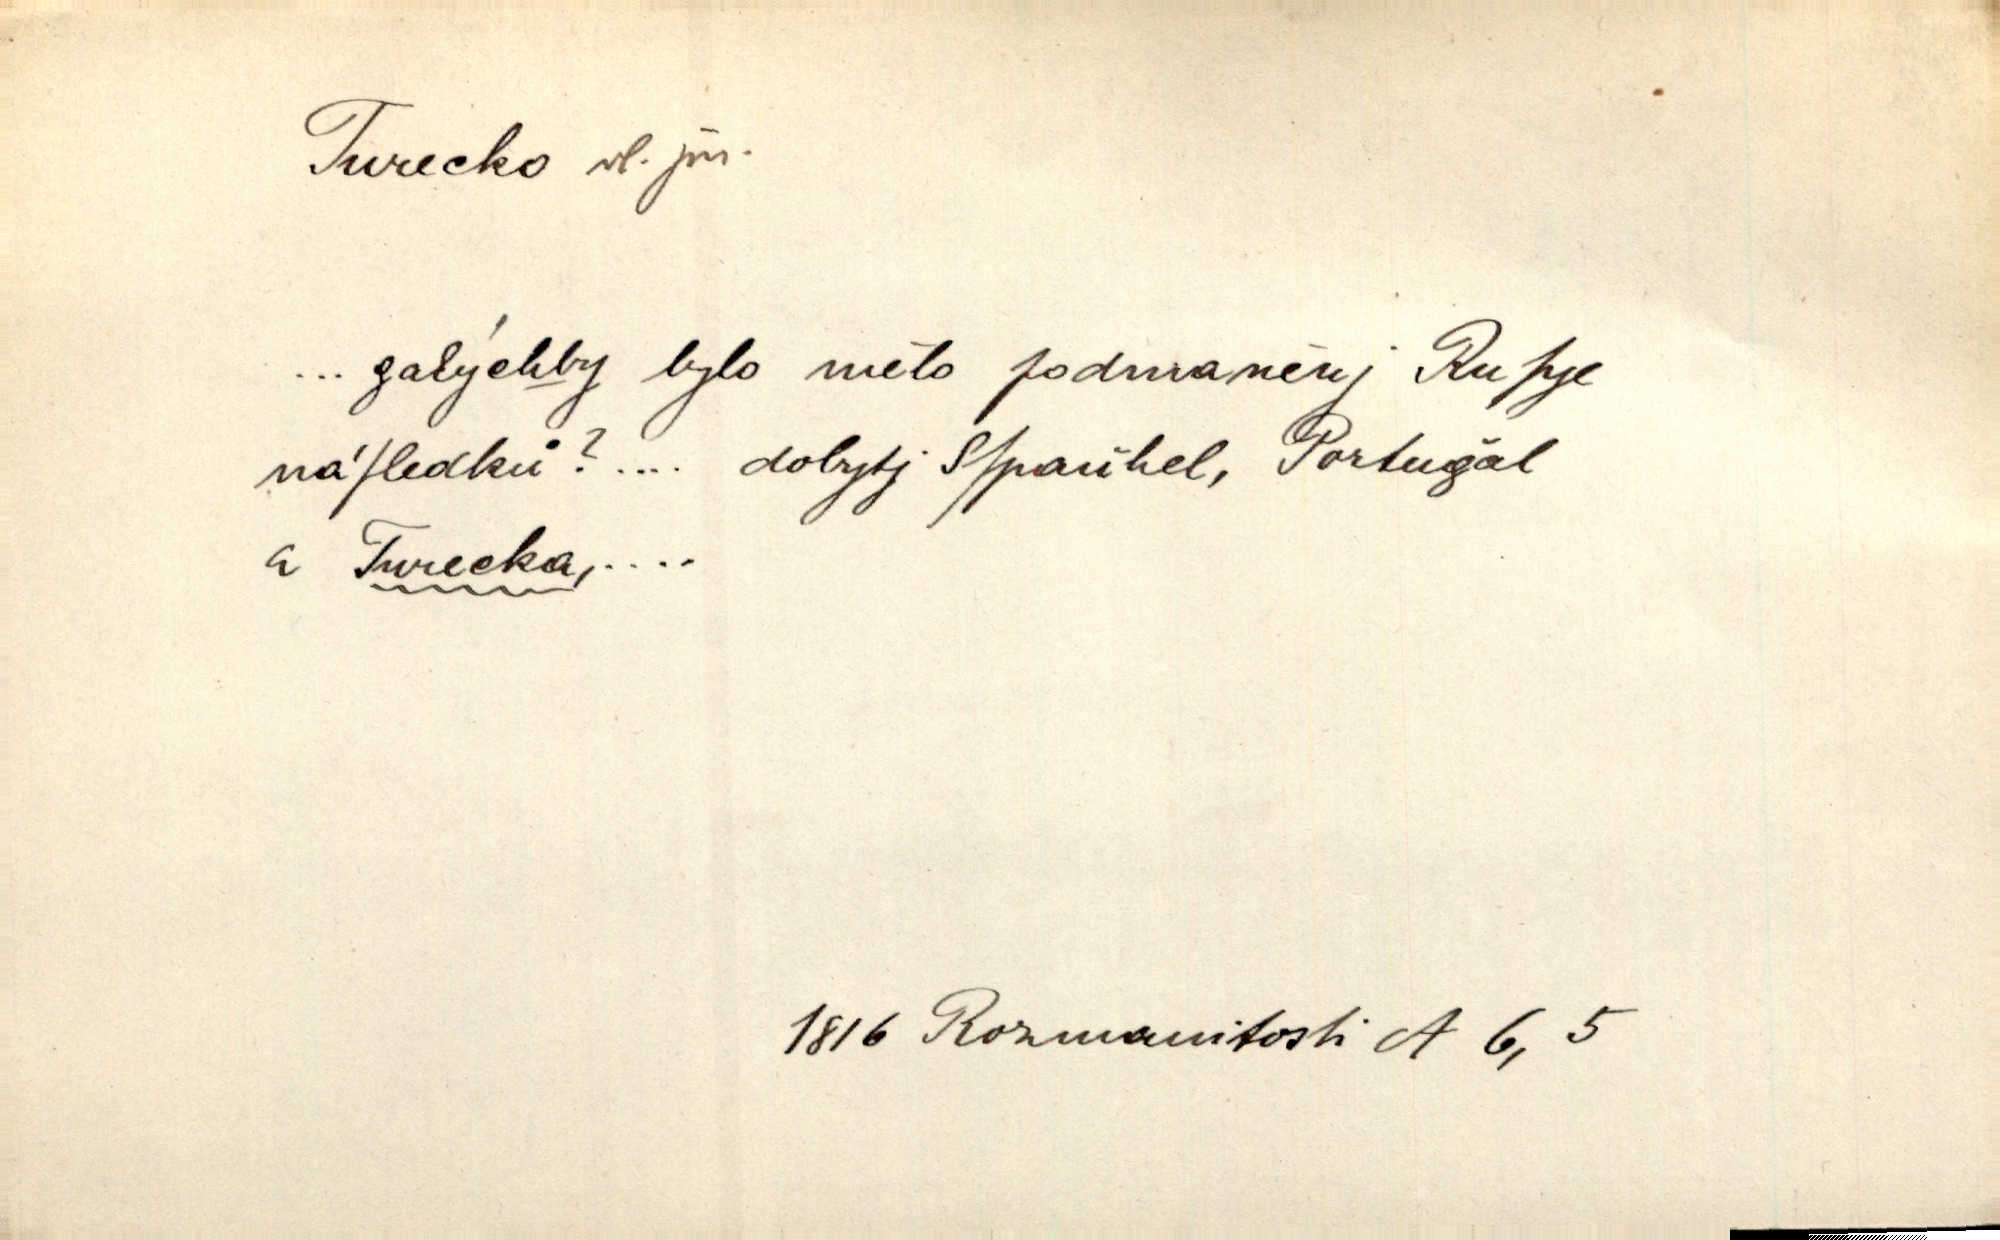 Turecko vl. jm.
... gakýchby bylo mělo podmaněnj Ruſye
náſledků? .... dobytj Sſpaňhel, Portugǎl
a Turecka, ....
1816 Rozmanitosti A 6, 5